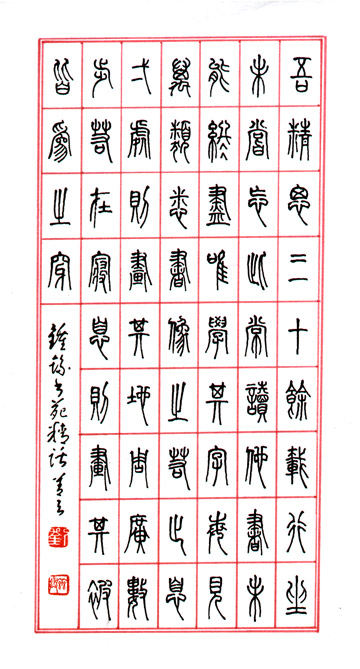 吾精思三十餘載行坐
未嘗忘此常讀他書未
能終盡唯學其字每見
萬類悉書像之若止息
弌處則畫其地周廣數
步若在寢息則畫其被
皆為之穿
鍾繇書苑精話
劉